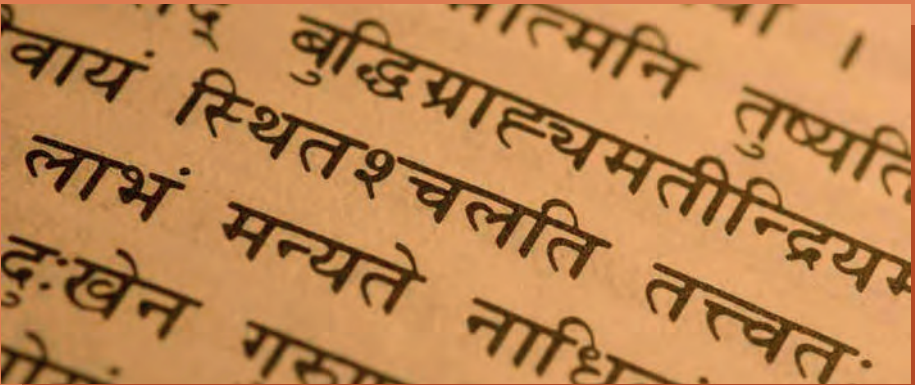 ।
त्मनि तुष्यति
बुद्धिग्राह्यमतीन्द्रियम
वायं स्थितश्चलति तत्त्वत
लाभं मन्यते नाधि
दुःखेन